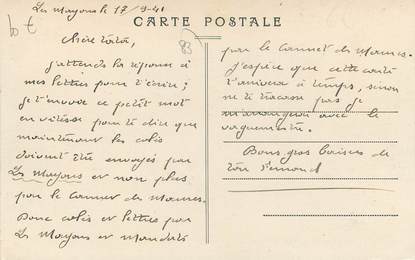 Les Mayons le 17/9-41
CARTE POSTALE
10 €
83
Chère tata,
J'attends la réponse à
mes lettres pour t'écrire;
je t'envoie ce petit mot
en vitesse pour te dire que
maintenant les colis
doivent être envoyés par
Les Mayons et non plus
par le Cannet des Maures.
Donc colis et lettres par
Les Mayons et mandats
par le Cannet des Maures.
J'espère que cette carte
t'arrivera à temps, sinon
ne te tracasse pas je
m'arrangerai avec le
vaguemestre.
Bons gros baisers de
ton